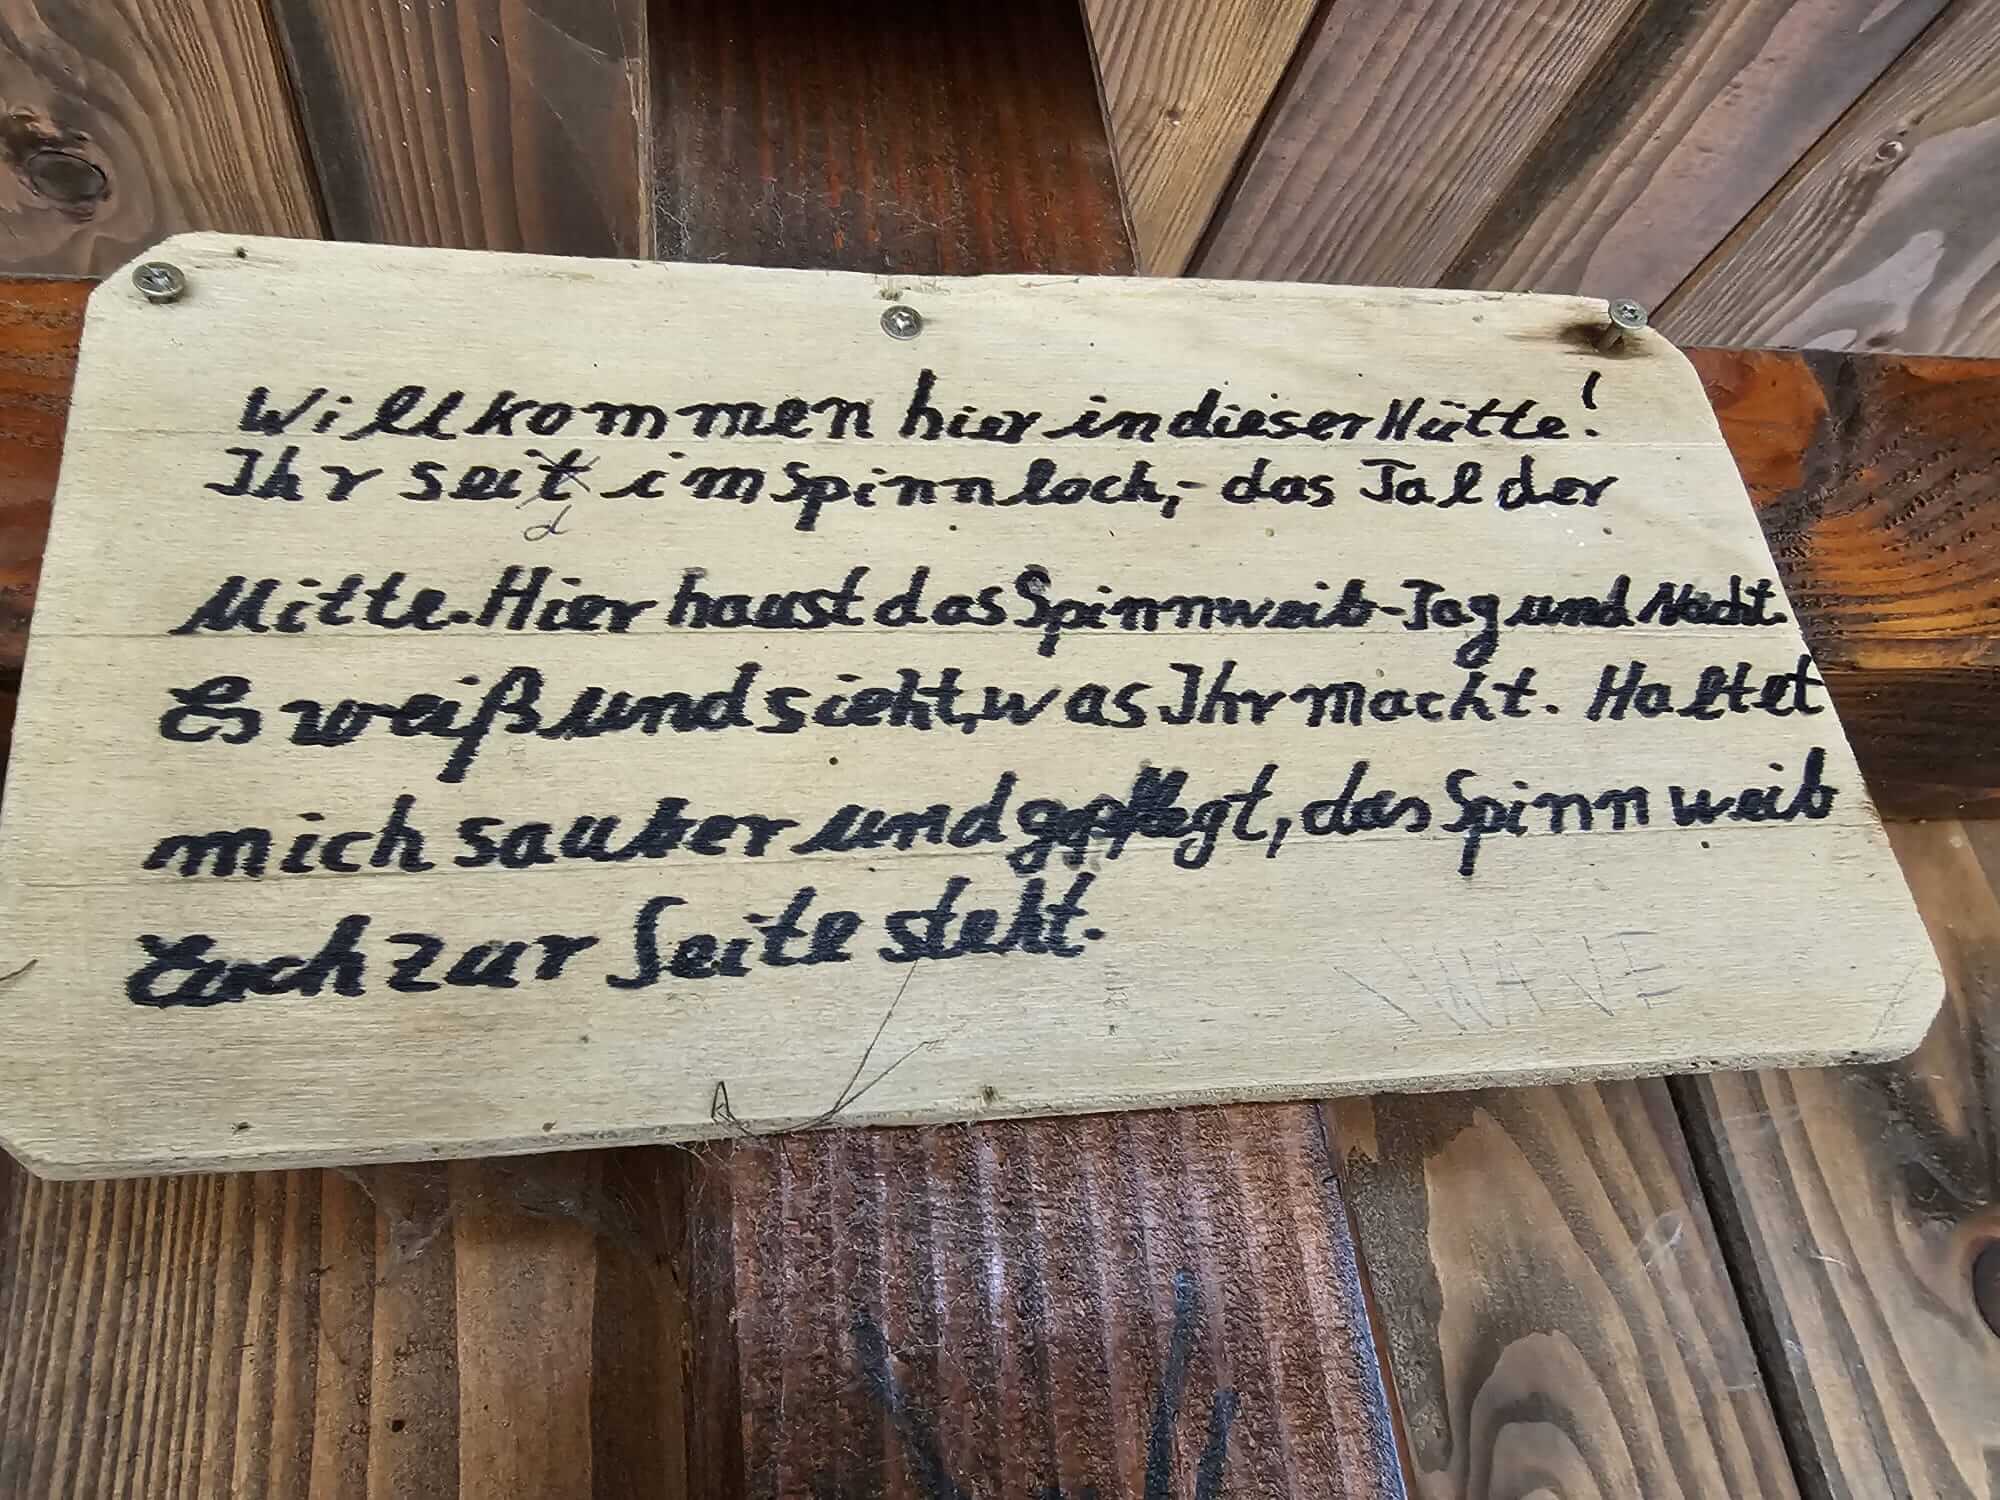 Willkommen hier in dieser Hütte!
Ihr seit im Spinnloch,- das Tal der
d
Mitte. Hier haust das Spinnweib-Tag und Nacht.
Es weiß und sieht, was Ihr macht. Haltet
mich sauber und gepflegt, das Spinnweib
Euch zur Seite steht.
WAVE